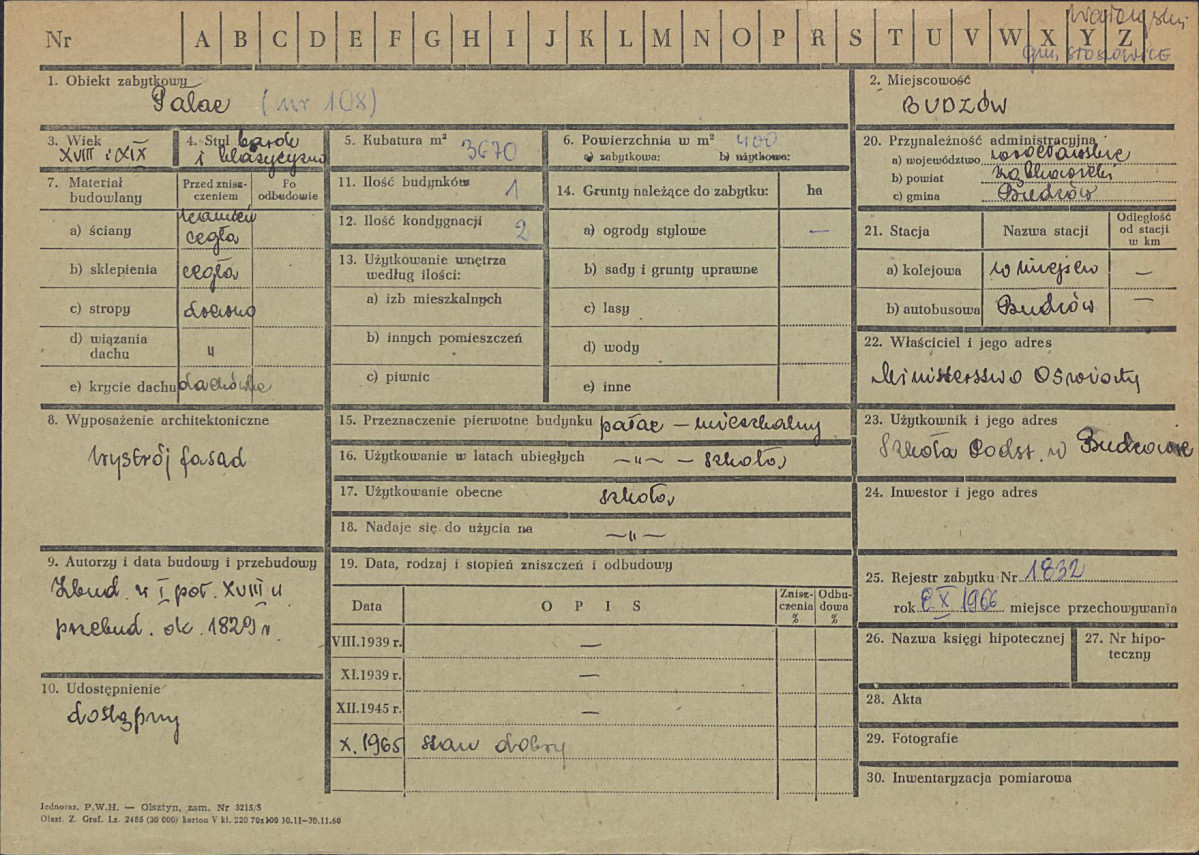 Nr A B C D E F G H I J K L M N O P R S T U V W X Y Z
gm. STOSZOWICE
1. Obiekt zabytkowy
Pałac (nr 108)
2. Miejscowość
BUDZÓW
3. Wiek
XVIII i XIX
4. Styl barok
i klasycyzm
5. Kubatura m²
3670
6. Powierzchnia w m² 400
a) zabytkowa: b) użytkowa:
7. Materiał budowlany
Przed zniszczeniem
Po odbudowie
a) ściany kamień
cegła
b) sklepienia cegła
c) stropy drewno
d) wiązania dachu "
e) krycie dachu dachówka
8. Wyposażenie architektoniczne
wystrój fasad
9. Autorzy i data budowy i przebudowy
Zbud. w I poł. XVIII w
przebud. ok. 1829 r.
10. Udostępnienie
dostępny
11. Ilość budynków 1
12. Ilość kondygnacji 2
13. Użytkowanie wnętrza
według ilości:
a) izb mieszkalnych
b) innych pomieszczeń
c) piwnic
14. Grunty należące do zabytku: ha
a) ogrody stylowe —
b) sady i grunty uprawne
c) lasy
d) wody
e) inne
15. Przeznaczenie pierwotne budynku pałac — mieszkalny
16. Użytkowanie w latach ubiegłych —"— — szkoła
17. Użytkowanie obecne szkoła
18. Nadaje się do użycia na —"—
19. Data, rodzaj i stopień zniszczeń i odbudowy
Data OPIS Zniszczenia % Odbudowa %
VIII.1939 r. —
XI.1939 r. —
XII.1945 r. —
X.1965 stan dobry
20. Przynależność administracyjna
a) województwo wrocławskie
b) powiat ząbkowicki
c) gmina Budzów
21. Stacja Nazwa stacji Odległość od stacji w km
a) kolejowa w miejscu —
b) autobusowa Budzów —
22. Właściciel i jego adres
Ministerstwo Oświaty
23. Użytkownik i jego adres
Szkoła Podst. w Budzowie
24. Inwestor i jego adres
25. Rejestr zabytku Nr 1832
rok 8 X 1966 miejsce przechowywania
26. Nazwa księgi hipotecznej
27. Nr hipoteczny
28. Akta
29. Fotografie
30. Inwentaryzacja pomiarowa
Jednoraz. P.W.H. — Olsztyn, zam. Nr 3215/S
Olszt. Z. Graf. Lz. 2485 (30 000) karton V kl. 220 70x100 10.11—30.11.60